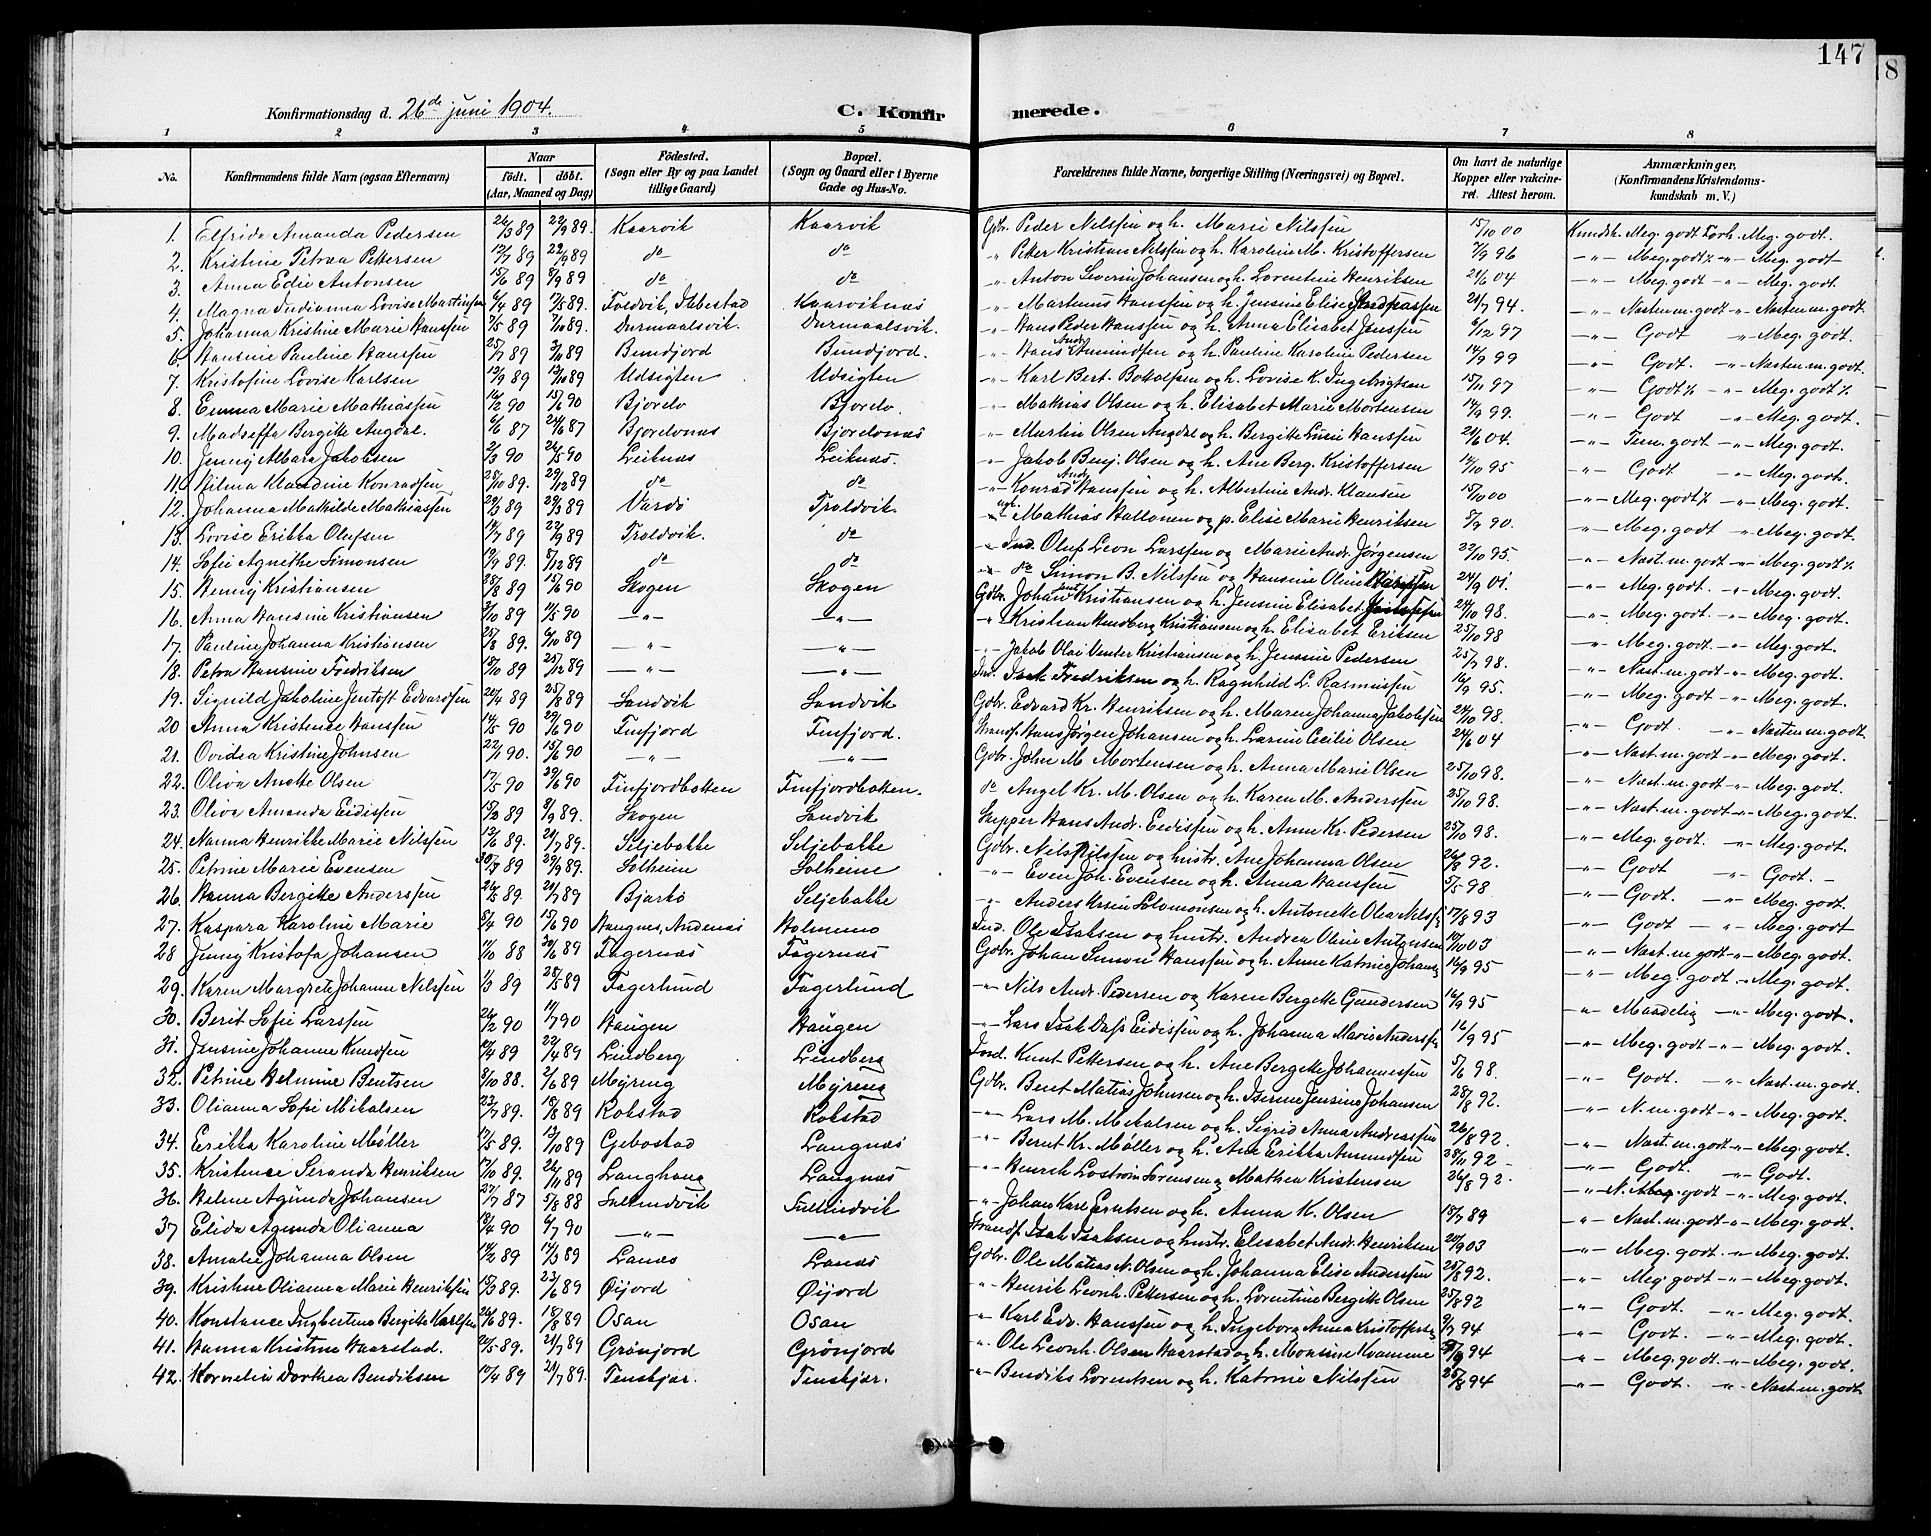 147
8
Konfirmationsdag d. 26de juni 1904.
C. Konfirmerede.
1 2 3 4 5 6 7 8
No. Konfirmandens fulde Navn (ogsaa Efternavn) Naar født. døbt. (Aar, Maaned og Dag) Fødested. (Sogn eller By og paa Landet tillige Gaard) Bopæl. (Sogn og Gaard eller i Byerne Gade og Hus-No. Forældrenes fulde Navne, borgerlige Stilling (Næringsvei) og Bopæl. Om havt de naturlige Kopper eller vakcineret. Attest herom. Anmærkninger. (Konfirmandens Kristendomskundskab m. V.)
1. Elfrida Amanda Pedersen 26/3 89 22/9 89. Kaarvik Kaarvik Gbr. Peder Nilssen og h. Marie Nilssen 15/10 00 Kundsk. Meg. godt Forh. Meg. godt.
2. Kristine Petrea Pettersen 12/7 89 22/9 89 do do " Peter Kristian Nilssen og h. Karoline M. Kristoffersen 7/9 96 -"- Meg. godt -"- Meg. godt
3. Anna Edie Antonsen 15/6 89 8/9 89 do do " Anton Severin Johansen og h. Lorentine Henriksen 21/6 04 -"- Meg. godt -"- Meg. godt.
4. Magna Indianna Lovise Martinsen 6/4 89 Foldvik, Ibbestad Kaarviknæs " Martinus Hanssen og h. Jensine Elise 21/7 94. -"- Næsten m. godt -"- Næsten m. godt.
5. Johanna Kristine Marie Hanssen 7/5 89 7/10 89. Durmaalsvik. Durmaalsvik. " Hans Peder Hanssen og h. Anna Elisabet Jenssen 6/12 97 -"- Godt -"- Meg. godt.
6. Hansine Pauline Hanssen 25/7 89 3/10 89 Bundjord Bundjord. " Hans Andr. Amundsen og h. Pauline Karoline Pedersen 14/9 99 -"- Godt. -"- Næsten m. godt.
7. Kristofine Lovise Karlsen 12/9 89 13/10 89 Udsigten Udsigten -"- Karl Bert. Bottolfsen og h. Lovise K. Ingebrigtsen 15/11 97 -"- Godt -"- Meg. godt
8. Emma Marie Mathiassen 16/2 90 15/6 90 Bjorelv Bjorelv. -"- Mathias Olsen og h. Elisabet Marie Mortensen 14/9 99. -"- Godt -"- Meg. godt.
9. Madseffa Bergitte Angdal. 6/6 87 24/6 87 Bjorelvnæs Bjorelvnæs -"- Martin Olsen Angdal og h. Bergitte Hanssen 21/6 04. -"- Tem. godt -"- Meg. godt.
10. Jenny Albara Jakobsen 2/3 90 26/5 90 Leiknæs Leiknæs. -"- Jakob Benj. Olsen og h. Ane Berg. Kristoffersen 14/10 95 -"- Godt -"- Meg. godt.
11. Vilma Klaudine Konradsen 28/10 89. 29/12 89 do do -"- Konrad Andr. Hanssen og h. Albertine Andr. Klausen 15/10 00 -"- Meg. godt -"- Meg. godt.
12. Johanna Mathilde Mathiassen 29/3 89 29/3 89 Vardø Troldvik. Mathias Hallonen og p. Elise Marie Henriksen 5/9 90. -"- Meg. godt -"- Meg. godt.
13. Lovise Erikka Olufsen 14/7 89 22/9 89 Troldvik. do Ind. Oluf Leon Larssen og Marie Andr. Jørgensen 22/10 95. -"- Nast. m. godt -"- Meg. godt
14. Sofie Agnethe Simonsen 19/9 89. 8/12 89 do do do Simon B. Nilssen og Hansine Oline 24/9 01. -"- Meg. godt. -"- Meg. godt.
15. Henny Kristiansen 28/8 89 15/6 90 Skogen Skogen Gbr. Johan Kristiansen og h. Jensine Elisabet 24/10 98. -"- Meg. godt. -"- Meg. godt.
16. Anna Hansine Kristiansen 3/10 89 11/5 90 -"- -"- " Kristian Kristiansen og h. Elisabet Eriksen 25/10 98 -"- Meg. godt -"- Meg. godt.
17. Pauline Johanna Kristiansen 25/8 89. 6/10 89 -"- -"- -"- Jakob Olai Kristiansen og h. Jensine Pedersen 25/7 98. -"- Nast. m. godt -"- Meg. godt.
18. Petra Hansine Fredriksen 18/10 89 25/12 89 -"- -"- Ind. Isak Fredriksen og h. Ragnhild L. Rasmussen 16/9 95. -"- Meg. godt -"- Meg. godt.
19. Signild Jakoline Jentoft Edvardsen 20/4 89 25/8 89 Sandvik Sandvik Gbr. Edvard Kr. Henriksen og h. Maren Johanna Jakobsen 24/10 98. -"- Godt -"- Næsten m. godt
20 Anna Kristence Hanssen 14/5 90 29/6 90 Finfjord Finfjord. Hans Jørgen Johansen og h. Larine Cecilie Olsen 24/6 04 -"- Nast. m. godt -"- Meg. godt.
21. Ovidia Kristine Johnsen 22/1 90. 15/6 90 -"- -"- Gbr. John M. Mortensen og h. Anna Marie Olsen 25/10 98. -"- Nast. m. godt -"- Meg. godt.
22. Oliva Anette Olsen 17/5 90 29/6 90 Finfjordbotten Finfjordbotten. do Angel Kr. M. Olsen og h. Karen M. Anderssen 25/10 98. -"- Nast. m. godt -"- Meg. godt.
23. Oliva Amanda Eidissen 15/2 89 9/9 89. Skogen Sandvik Skipper Hans Andr. Eidissen og h. Anne Kr. Pedersen 25/10 98. -"- Meg. godt. -"- Meg. godt.
24. Nanna Henrikke Marie Nilssen 12/6 89. 21/7 89. Seljebakke Seljebakke Gbr. Nils Nilssen og hustr. Ane Johanna Olsen 26/8 92. -"- Godt -"- Godt. -
25. Petrine Marie Evensen 30/7 89 29/9 89. Solheim Solheim -"- Even Joh. Evensen og h. Anna Hanssen 5/5 98 -"- Godt. -"- Meg. godt.
26. Hanna Bergitte Anderssen 26/5 89. 21/7 89 Bjarkø Seljebakke " Anders Solomonsen og h. Antonette Olea 17/8 93 -"- Godt -"- Meg. godt
27. Kaspara Karoline Marie 8/4 90 15/6 90 Haugnes, Andenæs Holmmo Ind. Ole Isaksen og hustr. Andrea Oline Antonsen 10/10 03 -"- Nast. m. godt -"- Meg. godt.
28 Jenny Kristofa Johansen 11/10 88 30/6 89 Fagernæs Fagernæs Gbr. Johan Simon Hanssen og h. Anne Katrine 16/9 95 -"- Meg. godt. -"- Meg. godt.
29. Karen Margrete Johanne Nilssen 1/3 89 28/5 89 Fagerlund Fagerlund -"- Nils Andr. Pedersen og Karen Bergitte Gundersen 16/9 95 -"- Maadelig -"- Meg. godt.
30. Berit Sofie Larssen 26/2 90 11/7 90 Haugen Haugen -"- Lars Isak Eidissen og h. Johanna Marie 16/9 95 -"- Meg. godt -"- Meg. godt.
31. Jensine Johanne Knudsen 12/4 89 22/4 89 Lindberg Lindberg Ind. Knut Pettersen og h. Ane Bergitte Johannessen 5/6 98. -"- Godt. -"- Nast. m. godt.
32. Petrine Helmine Bentsen 8/10 88. 2/6 89 Myreng Myreng Gbr. Bent Matias Johnsen og h. Iserine Jensine Johansen 28/8 92. -"- N. m. godt -"- Meg. godt.
33. Olianna Sofie Mikalsen 23/7 89. 18/8 89 Rokstad Rokstad -"- Lars M. Mikalsen og h. Sigrid Anna Andreassen 26/8 92. -"- Nast. m. godt -"- Meg. godt.
34. Erikka Karoline Møller 17/5 89. 13/10 89 Gebostad Langnæs -"- Bernt Kr. Møller og h. Ane Erikka Amundsen 28/11 92 -"- Godt -"- Godt.
35. Kristence Seranda Henriksen 17/10 89. 26/11 89 Langhaug Langnæs -"- Henrik Sørensen og Mathea Kristensen 26/8 92. -"- N. godt -"- Meg. godt.
36. Helme Agunda Johansen 27/7 87 5/8 88 Sultindvik Sultindvik -"- Johan Karl Erntsen og h. Anna K. Olsen 18/7 89 -"- Nast. m. godt -"- Meg. godt.
37 Elida Agunda Olianna 13/4 90 6/7 90 -"- -"- Isak Isaksen og hustr. Elisabet Andr. Henriksen 20/9 03 -"- Meg. godt -"- Meg. godt.
38. Amalie Johanna Olsen 14/2 89 14/3 89 Lanæs Lanæs Gbr. Ole Matias N. Olsen og h. Johanna Elise Anderssen 25/8 92. -"- Meg. godt -"- Meg. godt.
39. Kristine Olianna Marie Henriksen 15/3 89. 23/6 89 Øijord Øijord -"- Henrik Leonh. Pettersen og h. Lorentine Bergitte Olsen 25/8 92 -"- Godt. -"- Meg. godt.
40. Konstance Ingbertine Bergitte Karlsen 26/6 89. 18/8 89 Osan Osan -"- Karl Edv. Hanssen og h. Ingeborg Anna 9/7 94 -"- Godt. -"- Meg. godt.
41. Hanna Kristine Haarstad. 20/5 89. 21/7 89 Grønjord Grønjord -"- Ole Leonh. Olsen Haarstad og h. Monsine Kvamme 94 -"- Meg. godt -"- Meg. godt.
42. Kornelia Dorthea Bendiksen 10/4 89 21/7 89. Tenskjær. Tenskjær. -"- Bendiks Lorentsen og h. Katrine Nilssen 25/8 94 -"- Godt. -"- Nast. m. godt